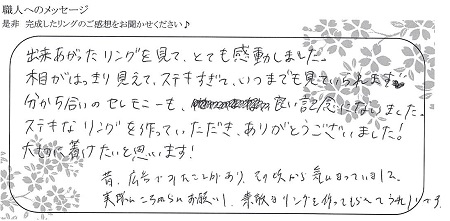 職人へのメッセージ
是非 完成したリングのご感想をお聞かせください♪
出来あがったリングを見て、とても感動しました。
木目がはっきり見えて、ステキすぎて、いつまでも見ていられます♥
分かち合いのセレモニーも、良い記念になりました。
ステキなリングを作っていただき、ありがとうございました!
大切に着けたいと思います!
昔、広告でみたことがあり、その頃から気になっていまして。
実際にこちらにお願いし、素敵なリングを作ってもらえてうれしいです。